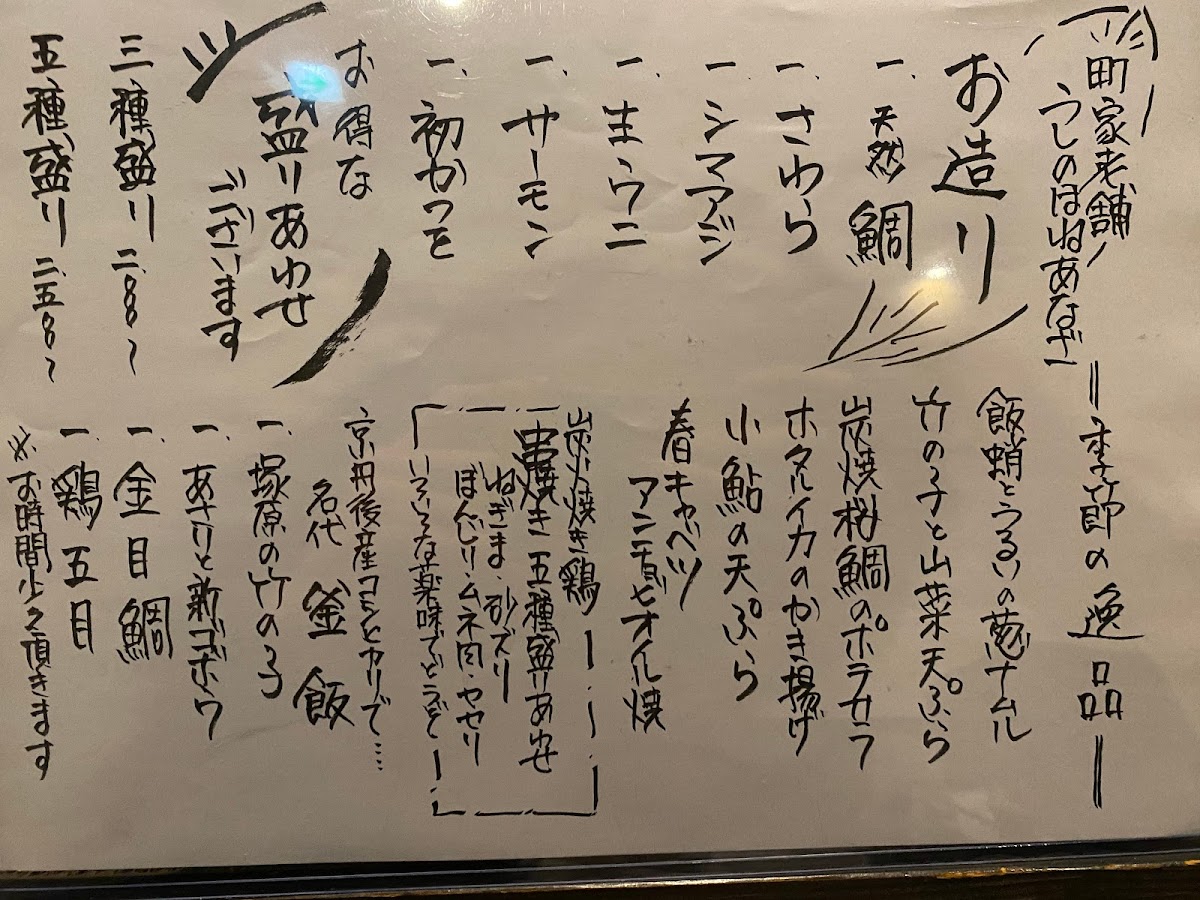 町家老舗
うしのほねあなざ
お造り
一、天然鯛
一、さわら
一、シマアジ
一、生ウニ
一、サーモン
一、初かつを
お得な
盛りあわせ
ございます
三種盛り
五種盛り
季節の逸品
飯蛸とうるいの葱ナムル
竹の子と山菜天ぷら
炭焼桜鯛のポテカラ
ホタルイカのかき揚げ
小鮎の天ぷら
春キャベツ
アンチョビオイル焼
炭火焼き鶏
串焼き五種盛りあわせ
ねぎま、砂ズリ
ぼんじり、ムネ肉、ヤセリ
いろいろな薬味でどうぞ
京丹後産コシヒカリで…
名代 釜飯
一、塚原の竹の子
一、あさりと新ゴボウ
一、金目鯛
一、鶏五目
※お時間少々頂きます